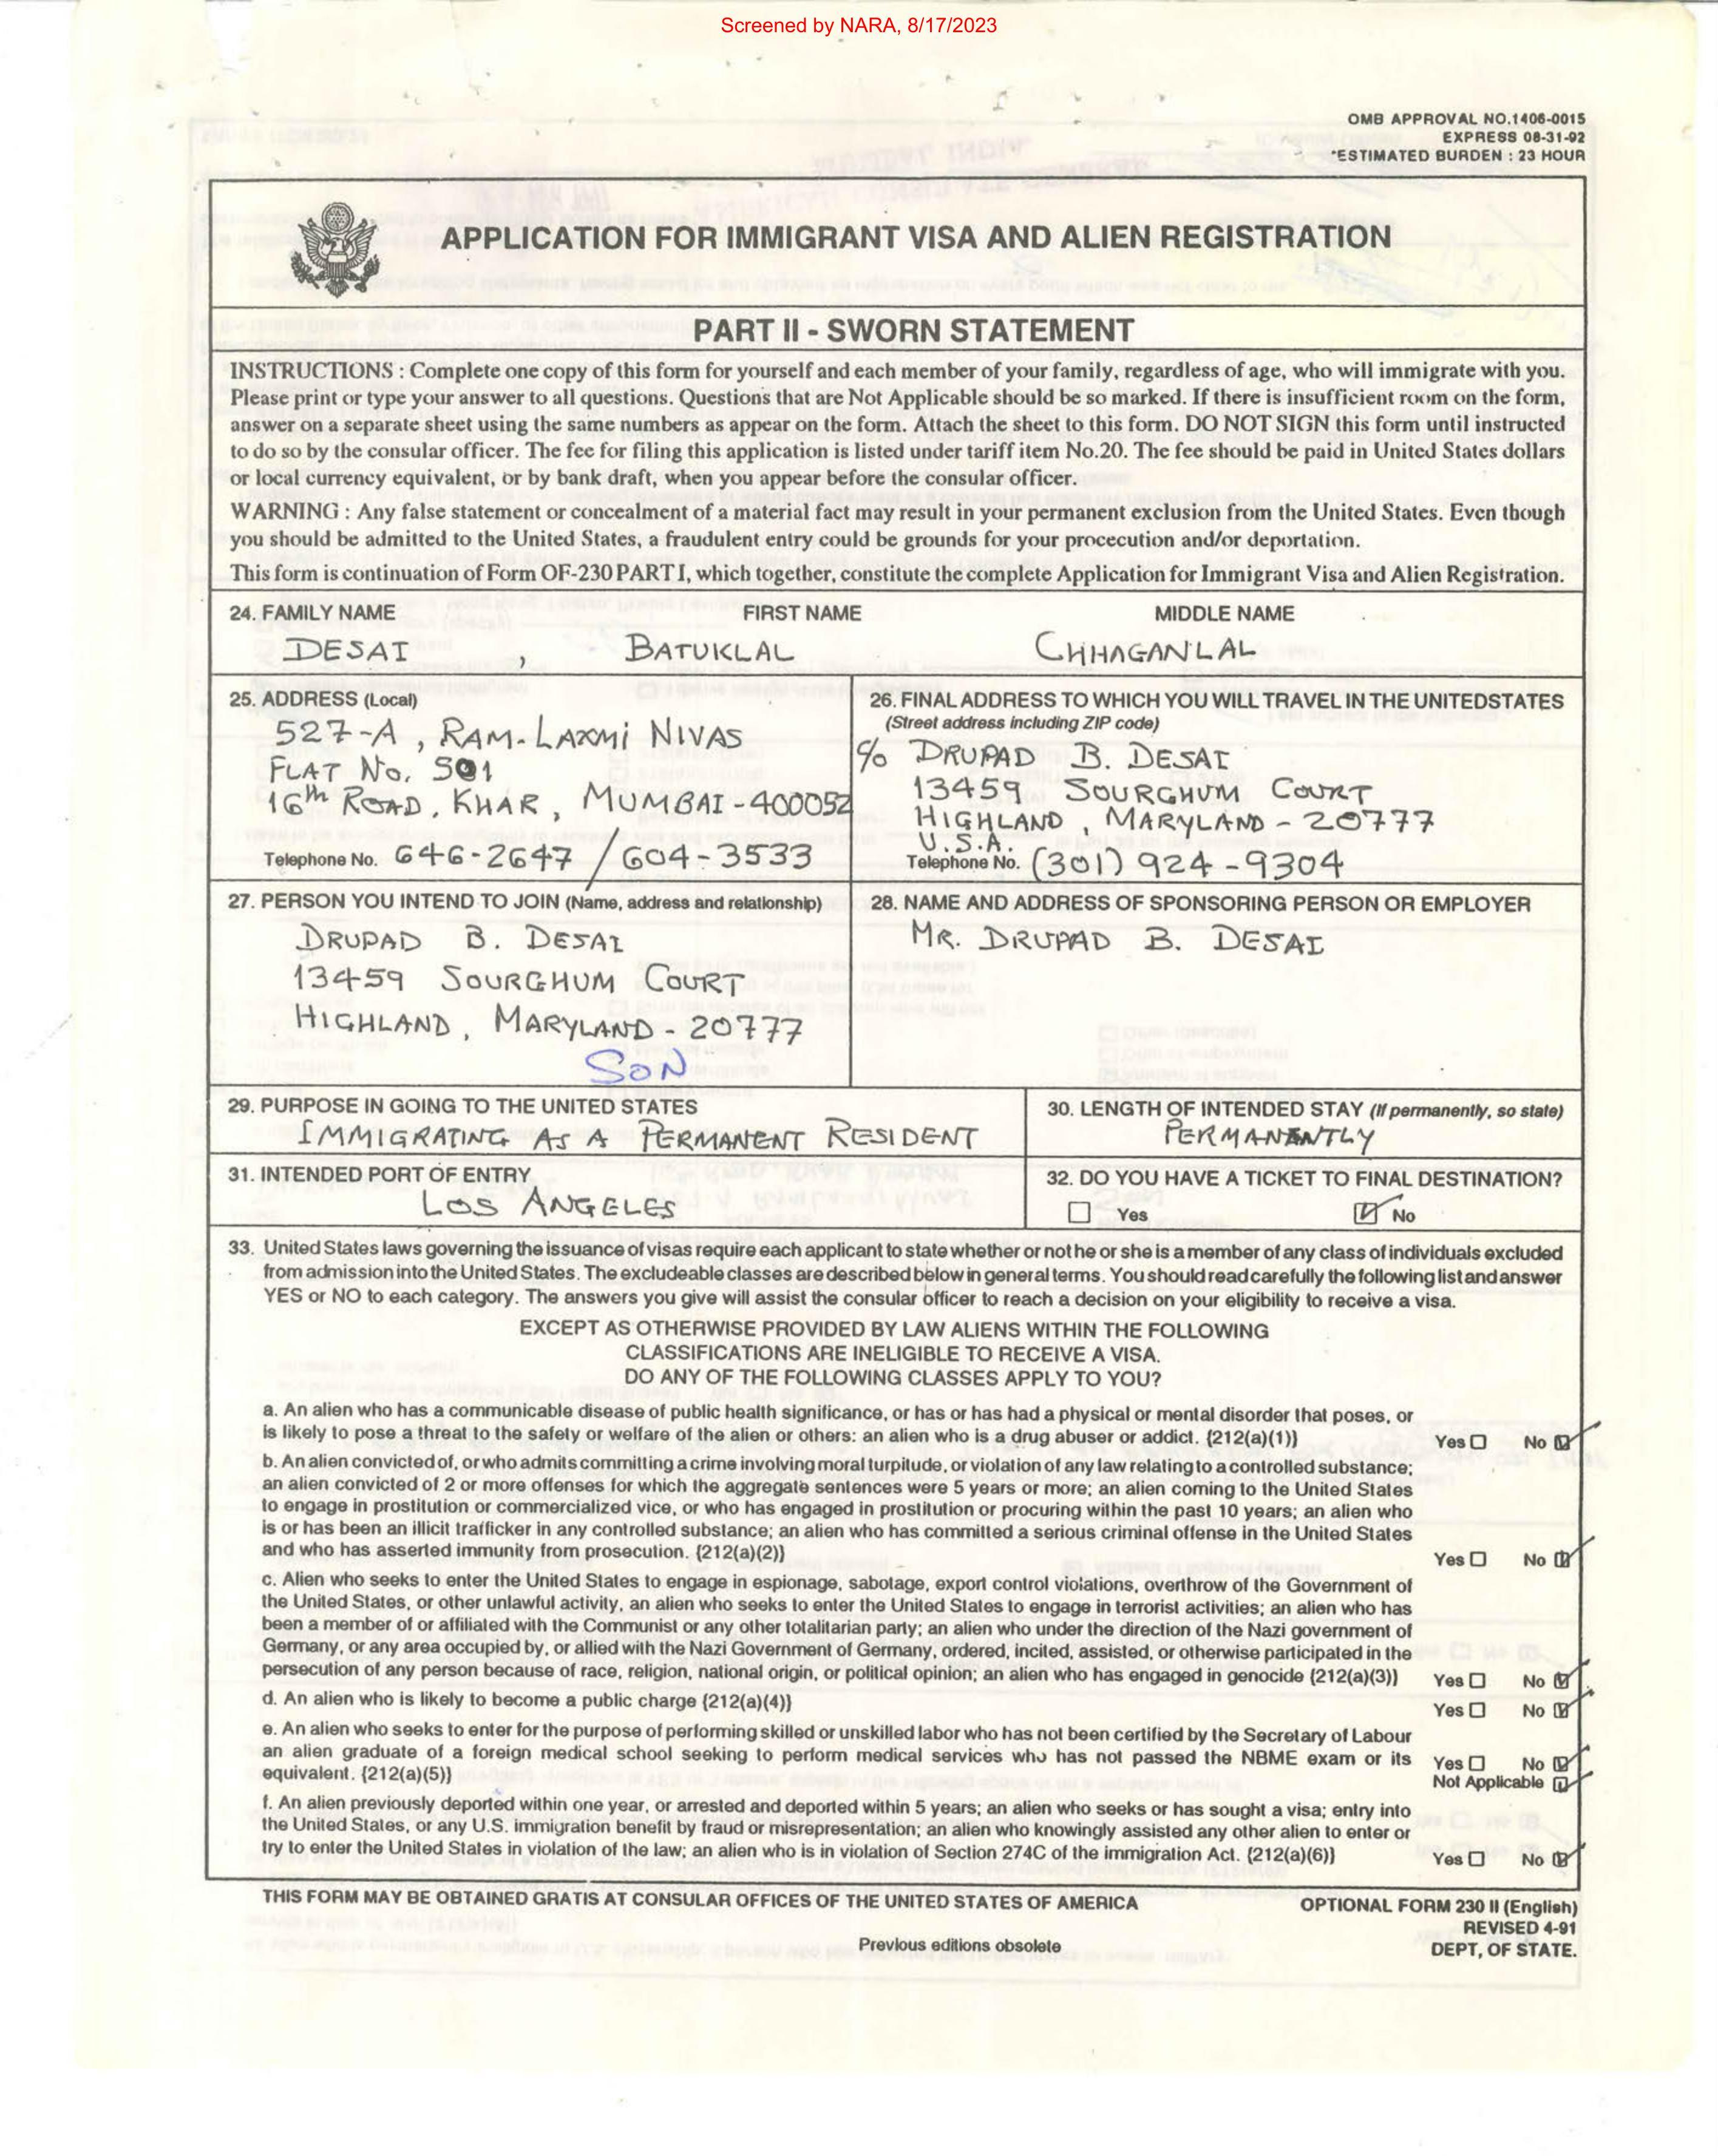 Screened by NARA, 8/17/2023
OMB APPROVAL NO.1406-0015
EXPRESS 08-31-92
*ESTIMATED BURDEN : 23 HOUR
APPLICATION FOR IMMIGRANT VISA AND ALIEN REGISTRATION
PART II - SWORN STATEMENT
INSTRUCTIONS : Complete one copy of this form for yourself and each member of your family, regardless of age, who will immigrate with you.
Please print or type your answer to all questions. Questions that are Not Applicable should be so marked. If there is insufficient room on the form,
answer on a separate sheet using the same numbers as appear on the form. Attach the sheet to this form. DO NOT SIGN this form until instructed
to do so by the consular officer. The fee for filing this application is listed under tariff item No.20. The fee should be paid in United States dollars
or local currency equivalent, or by bank draft, when you appear before the consular officer.
WARNING : Any false statement or concealment of a material fact may result in your permanent exclusion from the United States. Even though
you should be admitted to the United States, a fraudulent entry could be grounds for your procecution and/or deportation.
This form is continuation of Form OF-230 PART I, which together, constitute the complete Application for Immigrant Visa and Alien Registration.
24. FAMILY NAME FIRST NAME MIDDLE NAME
DESAI , BATUKLAL CHHAGANLAL
25. ADDRESS (Local)
527-A, RAM-LAXMI NIVAS
FLAT No. 501
16th ROAD, KHAR, MUMBAI-400052
Telephone No. 646-2647 / 604-3533
26. FINAL ADDRESS TO WHICH YOU WILL TRAVEL IN THE UNITEDSTATES
(Street address including ZIP code)
c/o DRUPAD B. DESAI
13459 SOURGHUM COURT
HIGHLAND, MARYLAND - 20777
U.S.A.
Telephone No. (301) 924-9304
27. PERSON YOU INTEND TO JOIN (Name, address and relationship)
DRUPAD B. DESAI
13459 SOURGHUM COURT
HIGHLAND, MARYLAND - 20777
SON
28. NAME AND ADDRESS OF SPONSORING PERSON OR EMPLOYER
MR. DRUPAD B. DESAI
29. PURPOSE IN GOING TO THE UNITED STATES
IMMIGRATING AS A PERMANENT RESIDENT
30. LENGTH OF INTENDED STAY (If permanently, so state)
PERMANANTLY
31. INTENDED PORT OF ENTRY
LOS ANGELES
32. DO YOU HAVE A TICKET TO FINAL DESTINATION?
Yes No
33. United States laws governing the issuance of visas require each applicant to state whether or not he or she is a member of any class of individuals excluded
from admission into the United States. The excludeable classes are described below in general terms. You should read carefully the following list and answer
YES or NO to each category. The answers you give will assist the consular officer to reach a decision on your eligibility to receive a visa.
EXCEPT AS OTHERWISE PROVIDED BY LAW ALIENS WITHIN THE FOLLOWING
CLASSIFICATIONS ARE INELIGIBLE TO RECEIVE A VISA.
DO ANY OF THE FOLLOWING CLASSES APPLY TO YOU?
a. An alien who has a communicable disease of public health significance, or has or has had a physical or mental disorder that poses, or
is likely to pose a threat to the safety or welfare of the alien or others: an alien who is a drug abuser or addict. {212(a)(1)} Yes No
b. An alien convicted of, or who admits committing a crime involving moral turpitude, or violation of any law relating to a controlled substance;
an alien convicted of 2 or more offenses for which the aggregate sentences were 5 years or more; an alien coming to the United States
to engage in prostitution or commercialized vice, or who has engaged in prostitution or procuring within the past 10 years; an alien who
is or has been an illicit trafficker in any controlled substance; an alien who has committed a serious criminal offense in the United States
and who has asserted immunity from prosecution. {212(a)(2)} Yes No
c. Alien who seeks to enter the United States to engage in espionage, sabotage, export control violations, overthrow of the Government of
the United States, or other unlawful activity, an alien who seeks to enter the United States to engage in terrorist activities; an alien who has
been a member of or affiliated with the Communist or any other totalitarian party; an alien who under the direction of the Nazi government of
Germany, or any area occupied by, or allied with the Nazi Government of Germany, ordered, incited, assisted, or otherwise participated in the
persecution of any person because of race, religion, national origin, or political opinion; an alien who has engaged in genocide {212(a)(3)} Yes No
d. An alien who is likely to become a public charge {212(a)(4)} Yes No
e. An alien who seeks to enter for the purpose of performing skilled or unskilled labor who has not been certified by the Secretary of Labour
an alien graduate of a foreign medical school seeking to perform medical services who has not passed the NBME exam or its Yes No
equivalent. {212(a)(5)} Not Applicable
f. An alien previously deported within one year, or arrested and deported within 5 years; an alien who seeks or has sought a visa; entry into
the United States, or any U.S. immigration benefit by fraud or misrepresentation; an alien who knowingly assisted any other alien to enter or
try to enter the United States in violation of the law; an alien who is in violation of Section 274C of the immigration Act. {212(a)(6)} Yes No
THIS FORM MAY BE OBTAINED GRATIS AT CONSULAR OFFICES OF THE UNITED STATES OF AMERICA
OPTIONAL FORM 230 II (English)
REVISED 4-91
Previous editions obsolete
DEPT, OF STATE.